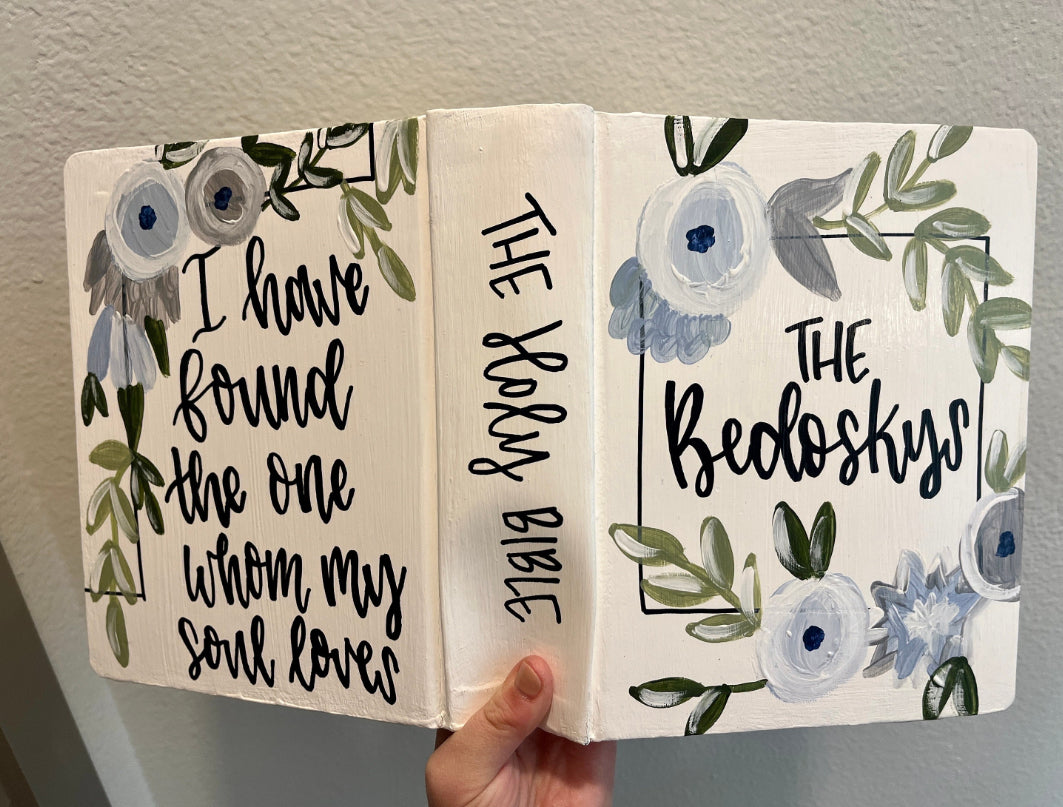 I have
found
the one
whom my
soul loves
THE Holy BIBLE
THE
Bedoskys